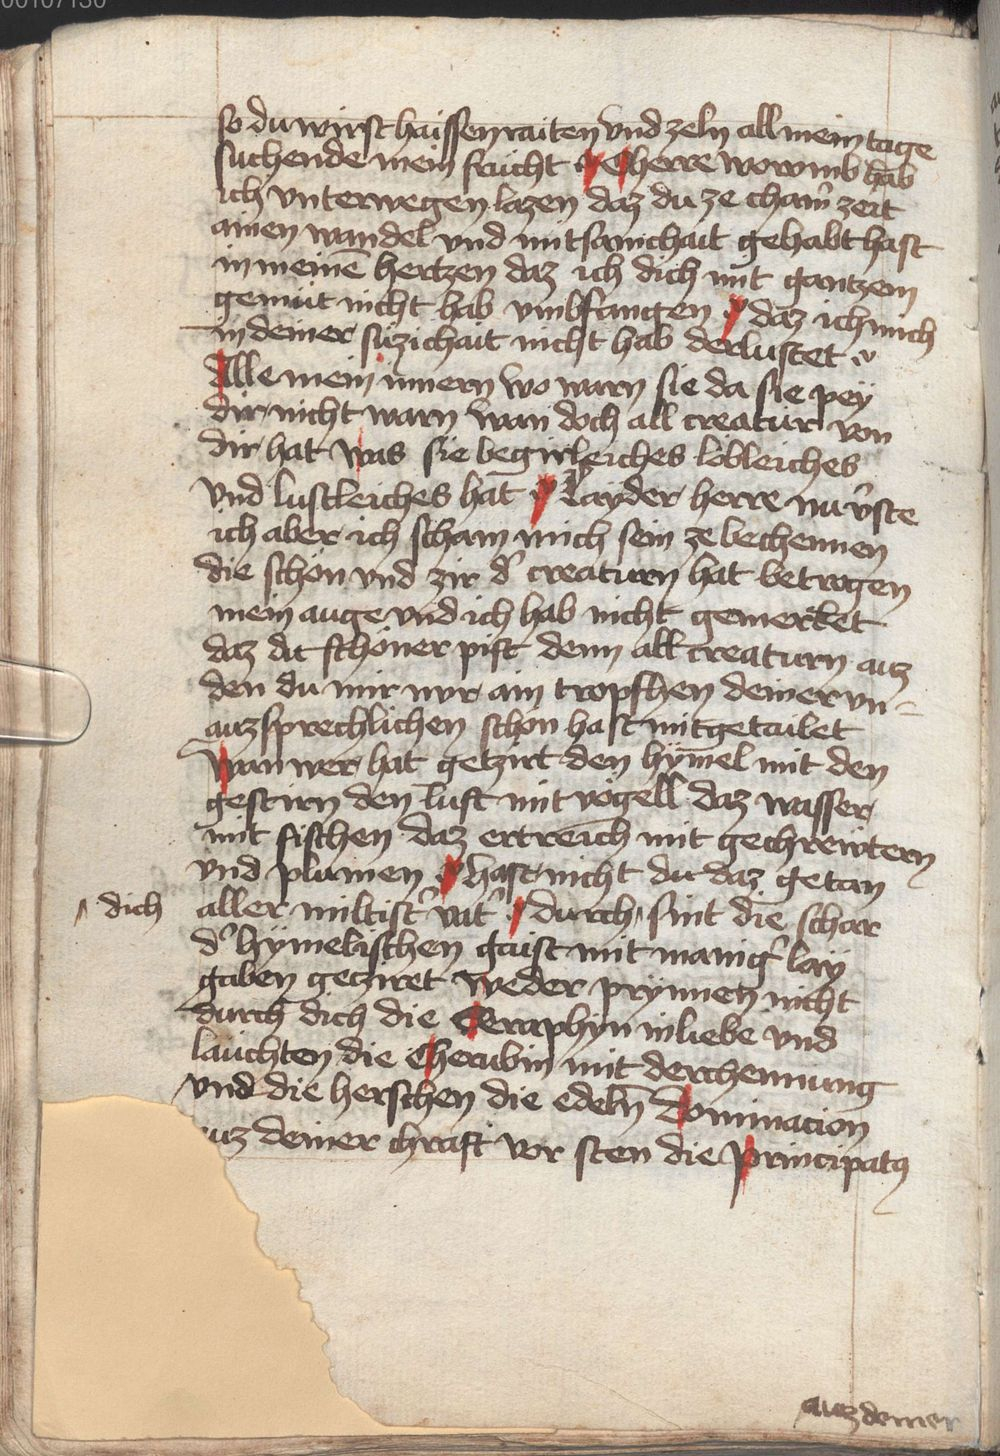 00107130
so du wirst haissen raiten vnd zeln all mein tage
suchende mein frücht Eherre worvmb hab
ich vnterwegen lazen daz du ze cham̄ zeit
ainen wandel vnd mitsamchait gehabt hast
in meinē hertzen daz ich dich mit gantzem
gemüt nicht hab vmbfangen daz ich mich
in deiner süzichait nicht hab derlustet
Alle mein innern wo warn sie da sie pey
dir nicht warn wan doch all creatur von
dir hat was sie begirleiches lobleiches
vnd lustleiches hat Layder herre nu v̂ste
ich aber ich scham mich sein ze bechennen
die schon vnd zir d̓ creaturn hat betrogen
mein auge vnd ich hab nicht gemerket
daz du schöner pist denn all creaturn auz
den du mir nvr ain tropfhen deiner vn-
auzsprechlichen schon hast mitgetailet
Wan wer hat getzirt den hȳmel mit den
gestirn den luft mit vögell daz wasser
mit fischen daz ertreich mit gechrewtern
vnd plumen hast nicht du daz getan
aller miltist̓ vat̓ durch sint die schar
dich
d̓ hymelischen gaist mit manig̓ lay
gaben geziret weder prynnen nicht
durch dich die Seraphyn in liebe vnd
lauchten die Cherubin mit derchennung
vnd die herschen die edeln̄ Dominacion
auz deiner chraft vor sten die principatꝰ
auz deiner